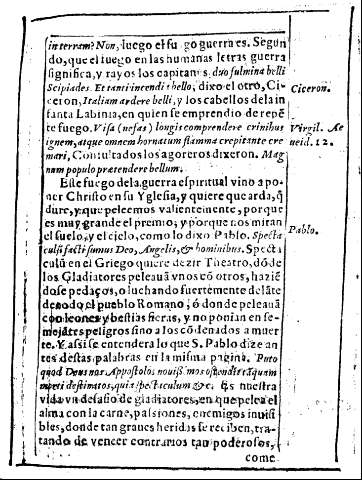 in terram? Non, luego el fuego guerra es. Segun
do, que el fuego en las humanas letras guerra
significa, y rayos los capitanes duo fulmina belli
Scipiades. Et tanti incendij bello, dixo el otro, Ci-
ceron, Italiam ardere belli, y los cabellos de la in
fanta Labinia, en quien se emprendio de repē
te fuego. Visa (nefas) longis comprendere crinibus
ignem, atque omnem hornatum flamma crepitante cre
mari, Consultados los agoreros dixeron. Mag
num populo prætendere bellum.
Este fuego de la guerra espiritual vino a po-
ner Christo en su Yglesia, y quiere que arda, q̃
dure, y que peleemos valientemente, porque
es muy grande el premio, y porque nos miran
el suelo, y el cielo, como lo dixo Pablo. Specta
culũ facti sumus Deo, Angelis, & hominibus. Specta
culũ en el Griego quiere dezir Theatro, dō de
los Gladiatores peleauã vnos cō otros, haziē
dose pedaços, o luchando fuertemente delāte
de todo el pueblo Romano, ó donde peleauã
con leones y bestias fieras, y no ponian en se-
mejātes peligros sino a los cō denados a muer
te. Y assi se entendera lo que S. Pablo dize an
tes destas palabras en la misma pagina. Puto
quod Deus nos Appostolos nouiss. mos ostendit tãquam
morti destinatos, quia spectaculum &c. Es nuestra
vida vn desafio de gladiatores, en que pelea el
alma con la carne, passiones, enemigos inuisi
bles, donde tan graues heridas se reciben, tra-
tando de vencer contrarios tan poderosos,
come
Ciceron.
Virgil. Ae
neid. 12.
Pablo.